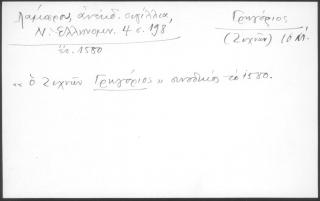 Λάμπρος ἀνέκδ. σιγίλλια,
Ν. Ἑλληνομν. 4 σ. 198
ἔτ. 1580
Γρηγόριος
(Ζιχνῶν) 10 Μ.
«ὁ Ζιχνῶν Γρηγόριος» συνοδικός τὸ 1580.